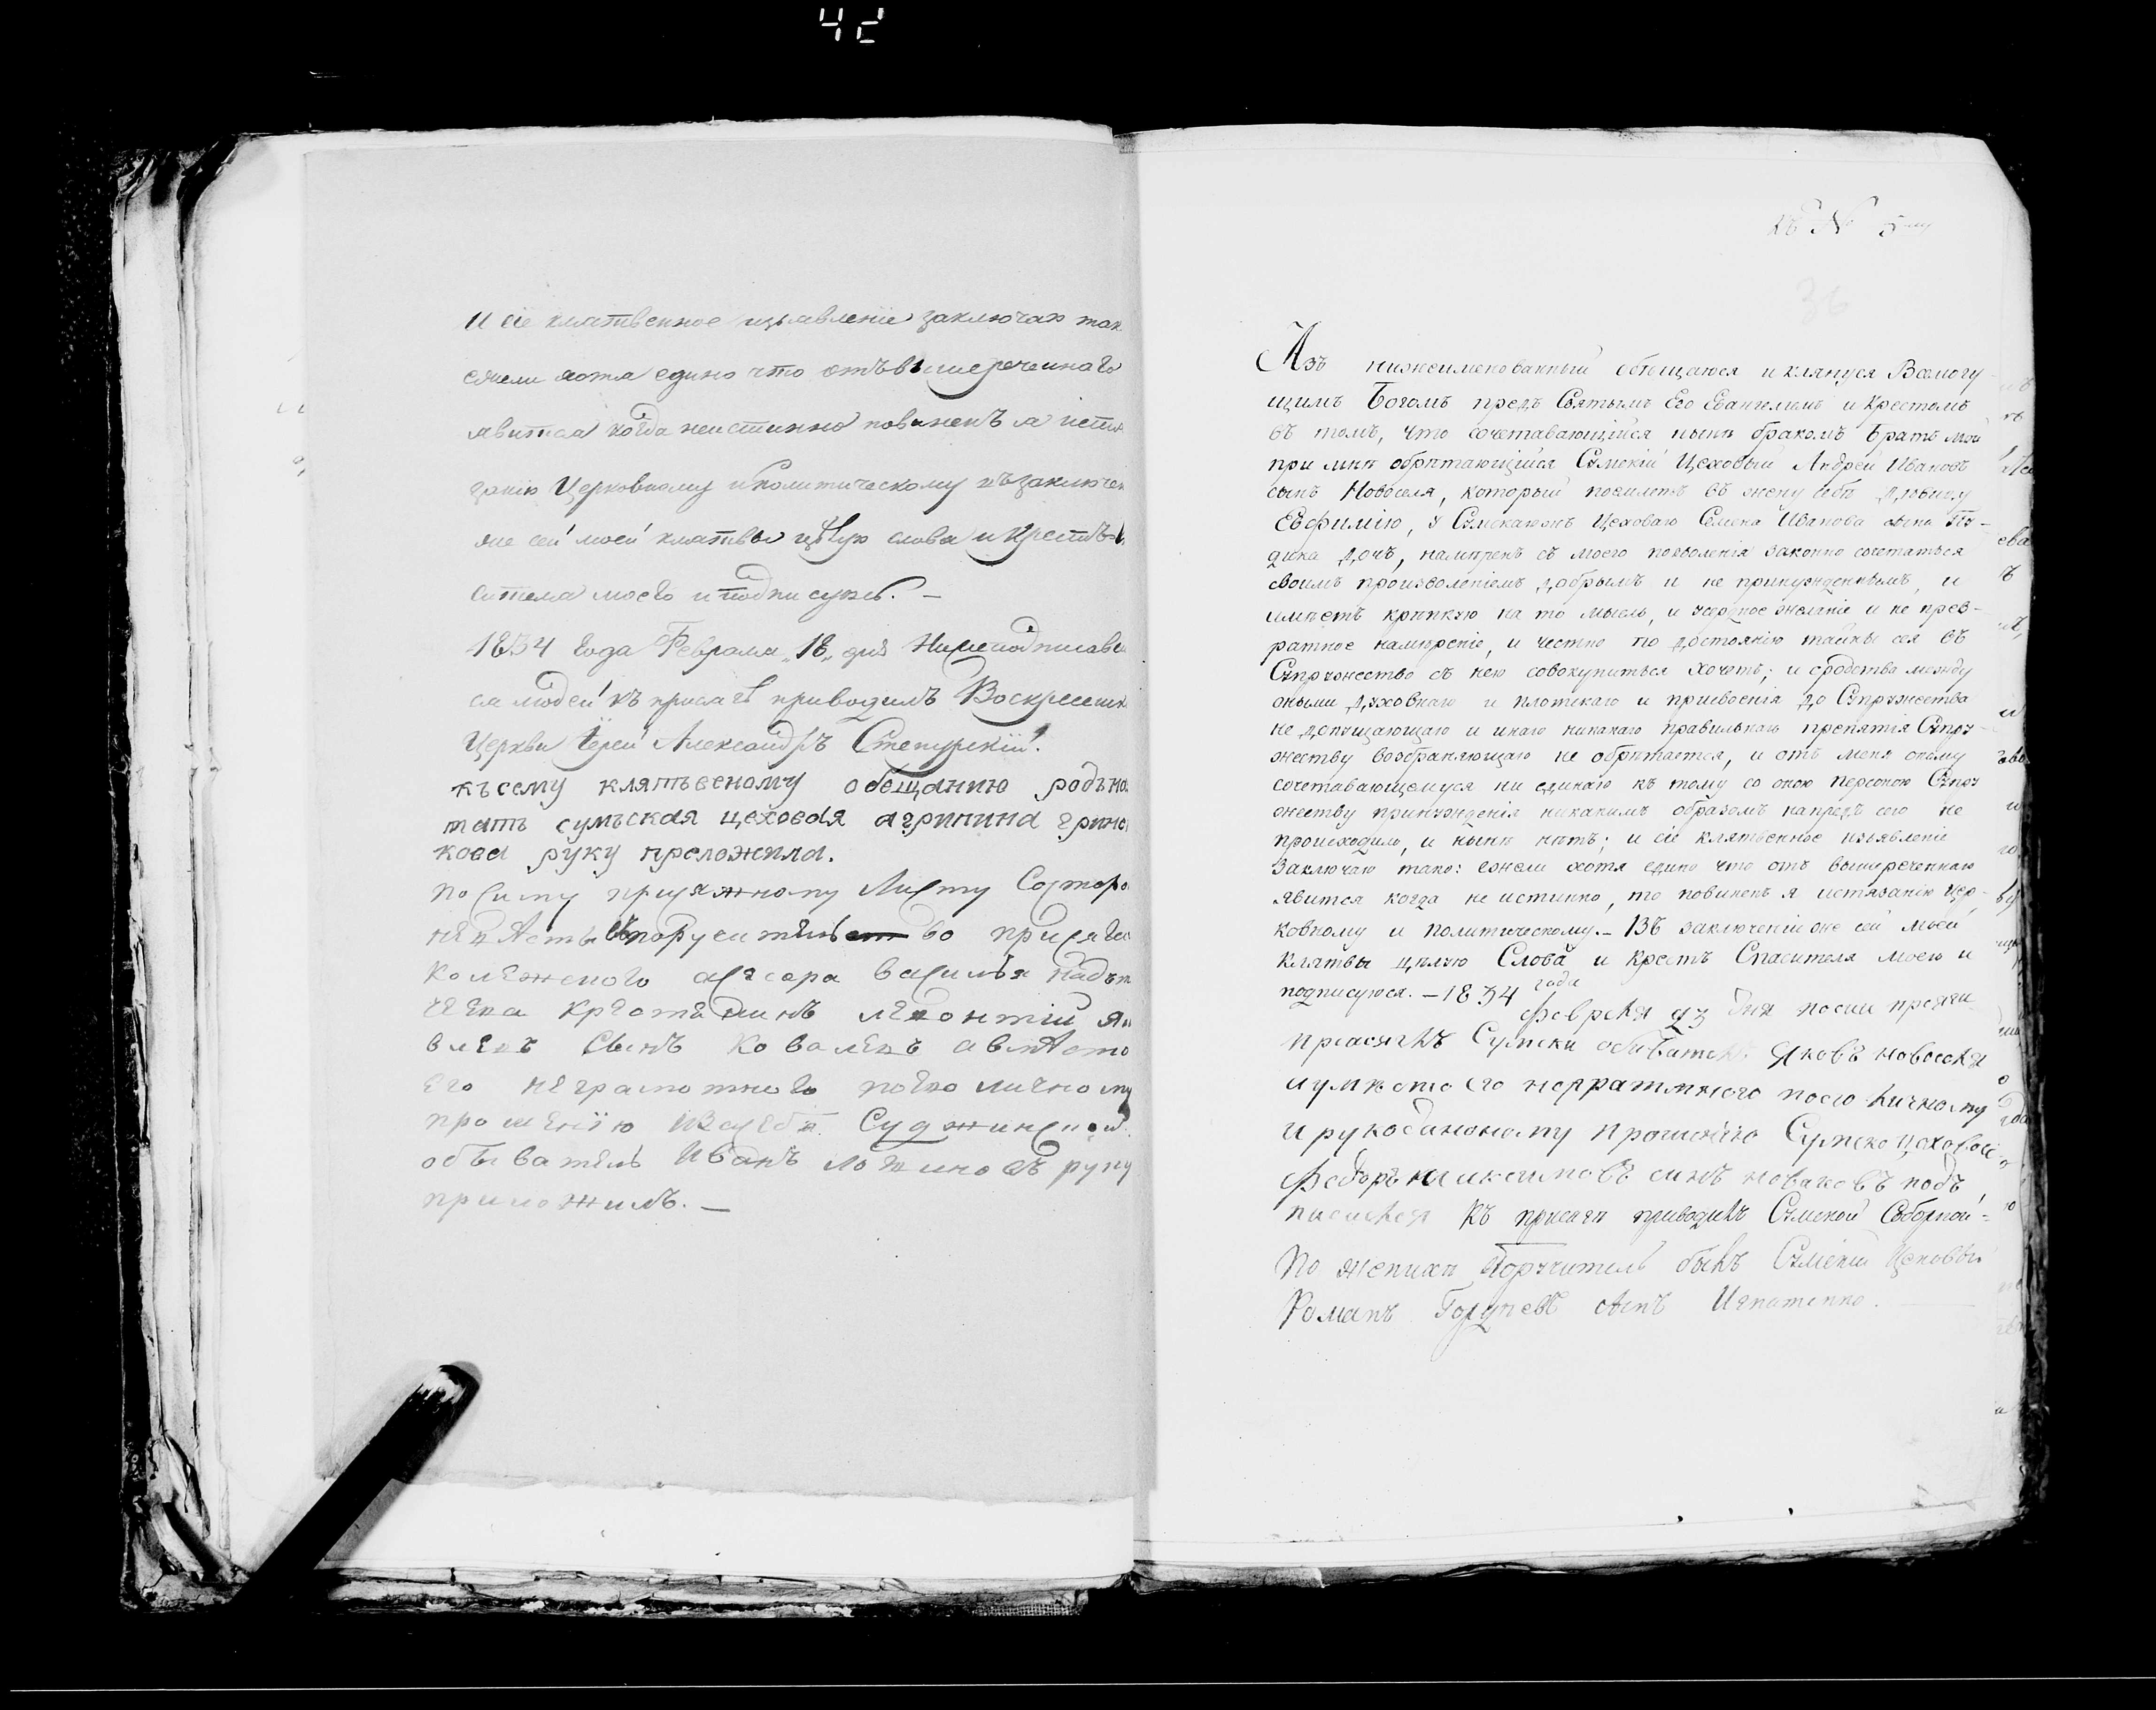 42
И сіе клятвенное изъявленіе заключаю так
ежели хотя едино что отъ вышереченнаго
явится когда неистинно повиненъ я истя
занію Церковному и Политическому въ заключен
же сей моей клятвы цѣлую слова и Крестъ
сителя моего и подписуюсь. —
1834 года Февраля „18„ дня Нижеподписав
ся людей къ присягѣ приводилъ Воскресенс
Церкви Іерей Александръ Степурскій.
къ сему клятьвеному обещанию родъна
мать сумъская цеховая агрипина грино
кова руку преложила.
по симу присяжному Листу Состоро
невѣсты въ поруси тельст во присягы
колежского асесора василья
чека крестянинъ леонтій як
влевъ сынъ ковалевъ авмѣсто
его неграмотнего по его личному
прошенію исебѣ Суджинской
обыватель Иванъ руку
приложилъ. —
Къ № 5му
36
Азъ нижеименованный обѣщаюся и клянуся Всемогу-
щимъ Богомъ предъ Святымъ Его Евангелиемъ и Крестомъ
въ томъ, что сочетавающійся нынѣ бракомъ Братъ мой
при мнѣ обрѣтающійся Сумскій Цеховый Андрей Ивановъ
сынъ Новоселя, который поемлетъ въ жену себѣ Дѣвицу
Евфимію, у Сумскаюжъ Цеховаго Семена Иванова сына По-
дика дочь, намѣренъ съ моего позволенія законно сочетаться
своимъ произволеніемъ добрымъ и не принужденнымъ, и
имѣетъ крѣпкую на то мысль, и усердное желаніе и не прев-
ратное намѣреніе, и честно по достоянію тайны сея въ
Супружество съ нею совокупиться хочетъ; и сродства между
оными духовнаго и плотскаго и присвоенія до Супружества
не допущающаго и инаго никакаго правильнаго препятія Супру-
жеству возбраняющаго не обрѣтается, и отъ меня оному
сочетавающемуся ни единаго къ тому со оною персоною Супру
жеству принужденія никакимъ образомъ напредъ сего не
происходило, и нынѣ нѣтъ; и сіе клятвенное изъявленіе
заключаю тако: ежели хотя едино что отъ вышереченнаго
явится когда не истинно, то повиненъ я истязанію Цер-
ковному и политическому. — Въ заключеніи же сей моей
клятвы цѣлую Слова и крестъ Спасителя моего и
подписуюся. — 1834 года
Февраля дня посии присяги
присягнъ Сумски обиватель Яковъ новоселя
аумѣсто его неграмтнаго посео личному
и рукоданному прошению Сумско цеховой
Федоръ максимовъ синъ новаковъ подъ
писался Къ присягѣ приводилъ Сумской Соборной
По женихѣ Поручитель былъ Сумскій Цеховый
Романъ сынъ Игнатенко.